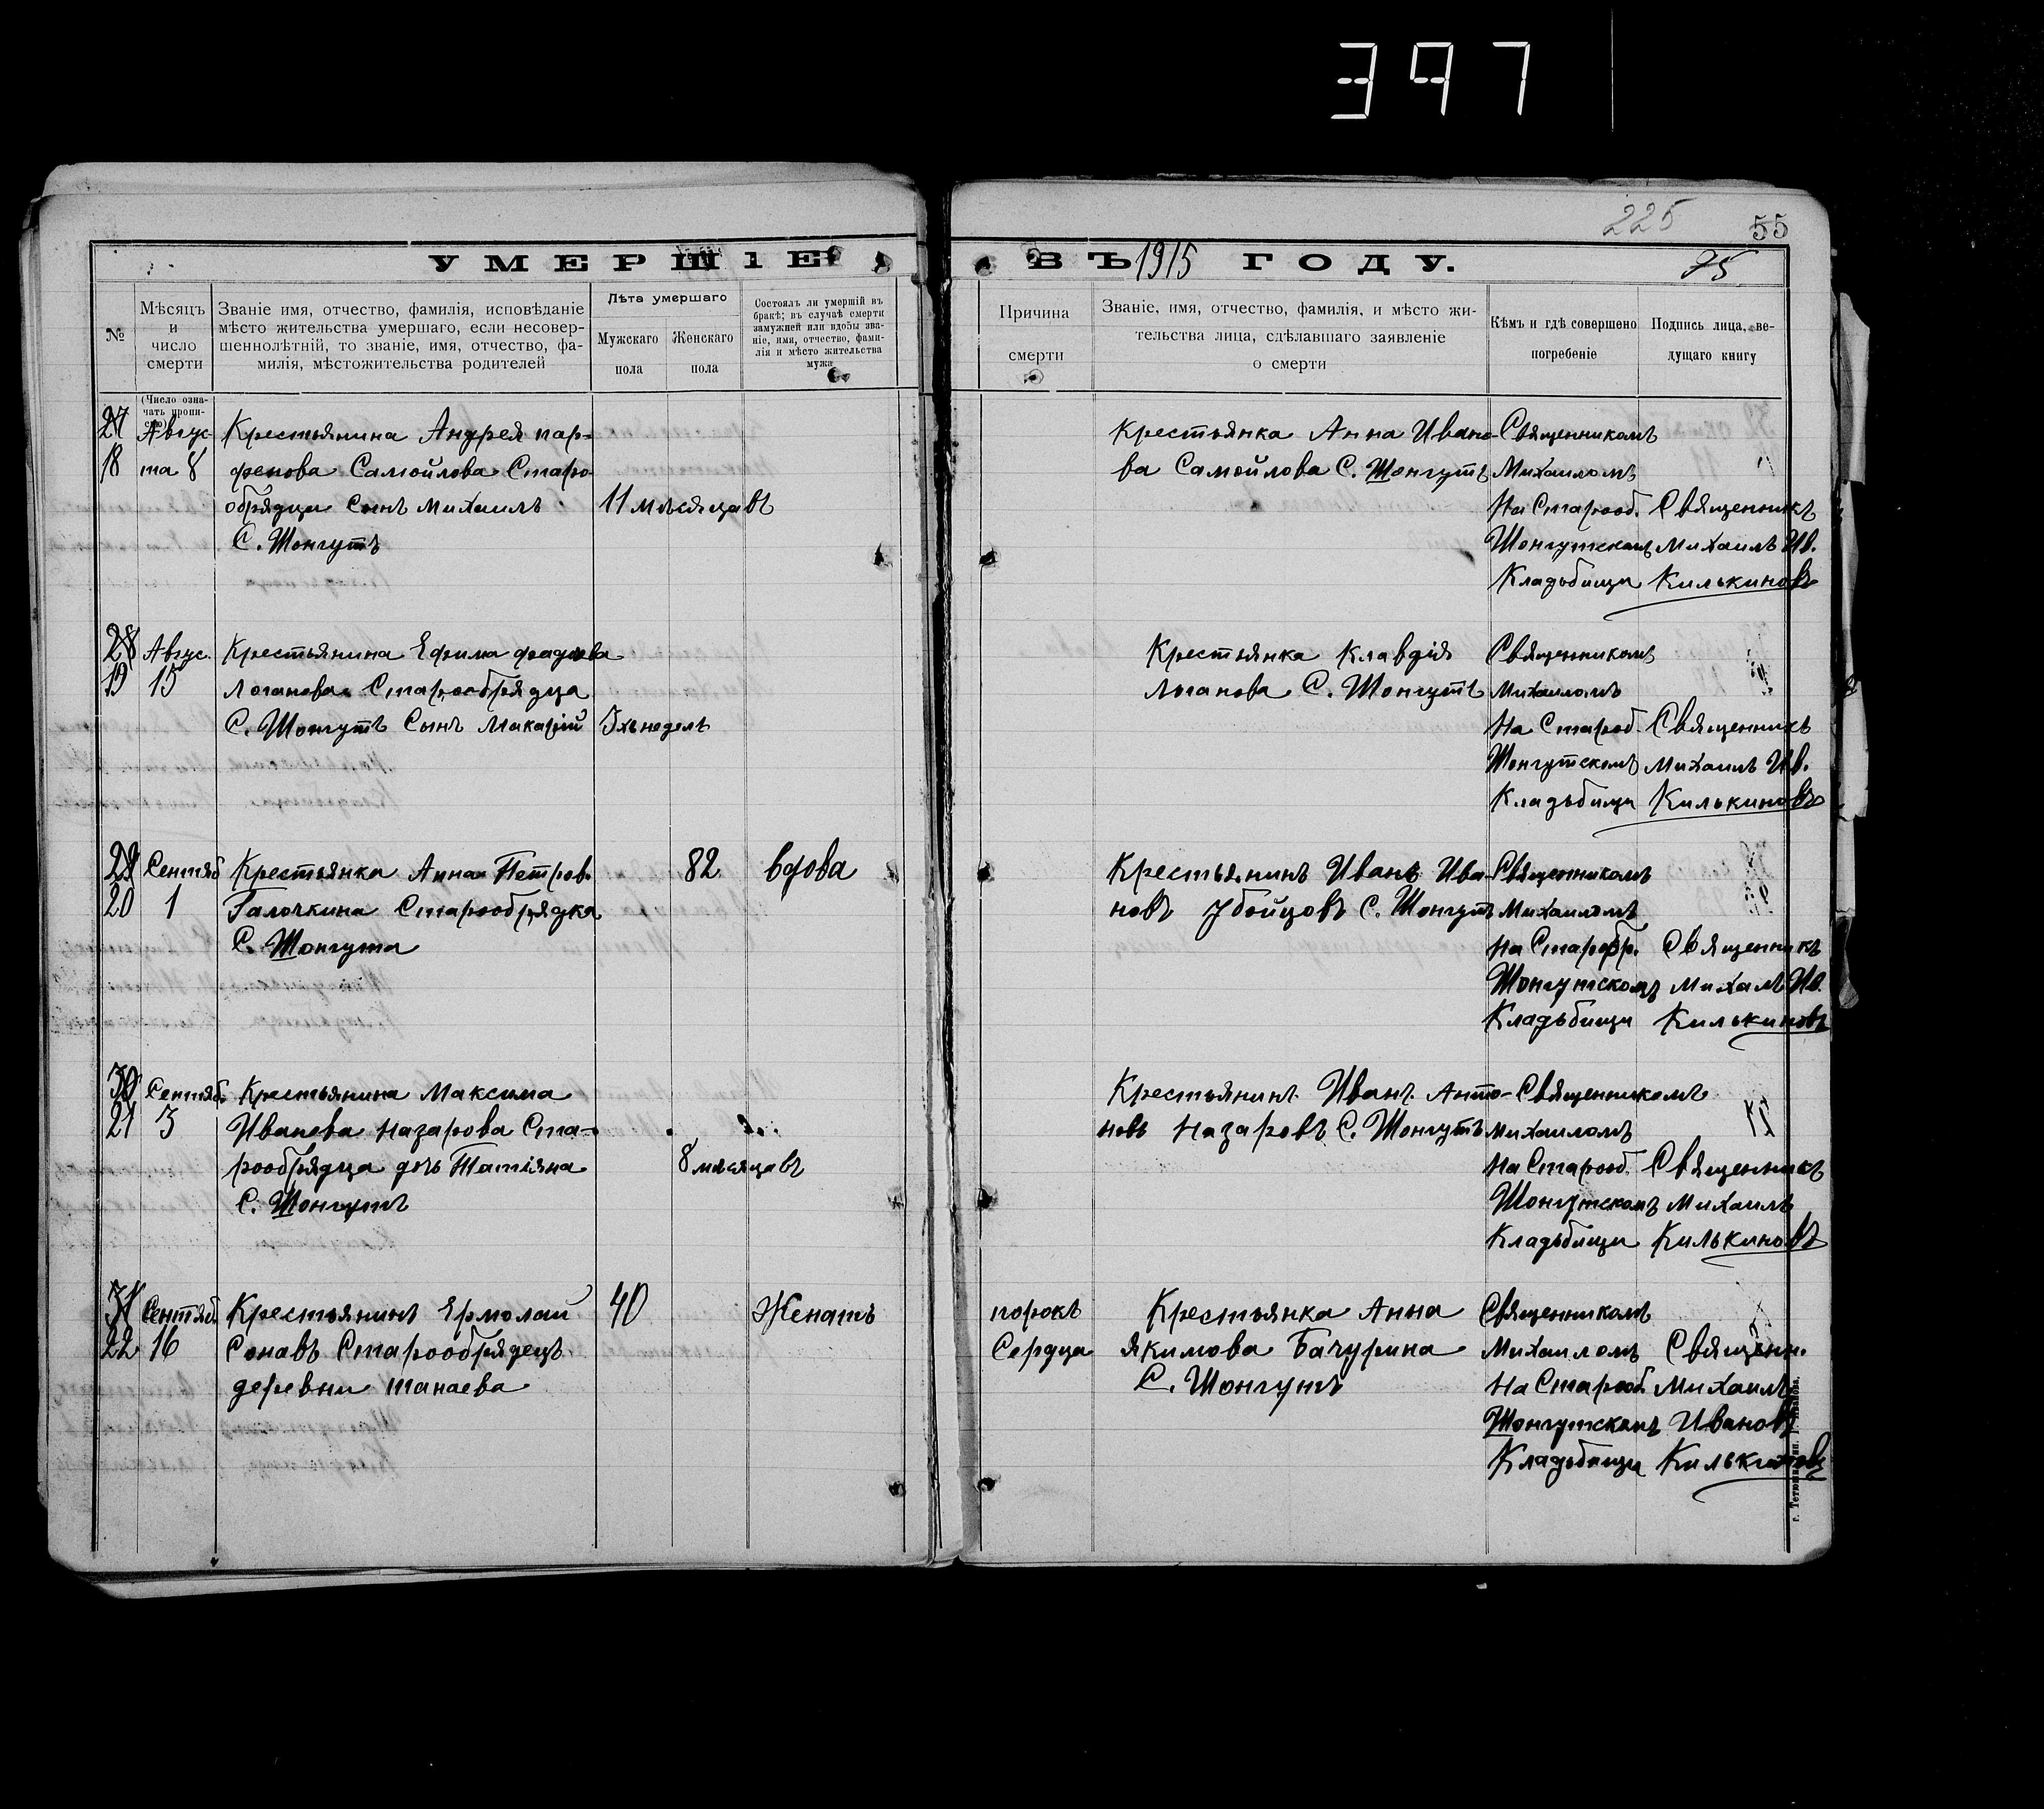 397
225
55
75
УМЕРШIЕ ВЪ 1915 ГОДУ.
№
Мѣсяцъ
и
число
смерти
(Число озна-
чать пропи-
сью)
Званіе имя, отчество, фамилія, исповѣданіе
мѣсто жительства умершаго, если несовер-
шеннолѣтній, то званіе, имя, отчество, фа-
милія, мѣстожительства родителей
Лѣта умершаго
Мужскаго
пола
Женскаго
пола
Состоялъ ли умершій въ
бракѣ; въ случаѣ смерти
замужней или вдовы зва-
ніе, имя, отчество, фами-
лія и мѣсто жительства
мужа
Причина
смерти
Званіе, имя, отчество, фамилія, и мѣсто жи-
тельства лица, сдѣлавшаго заявленіе
о смерти
Кѣмъ и гдѣ совершено
погребеніе
Подпись лица, ве-
дущаго книгу
27
18
Авгус
та 8
Крестьянина Андрея пар-
фенова Самойлова Старо-
обрядца Сынъ михаилъ
С. Шонгутъ
11 мѣсяцавъ
Крестьянка Анна Ивано-
ва Самойлова С. Шонгутъ
Священникомъ
Михаиломъ
На Старооб.
Шонгутскомъ
Кладьбищи
Священникъ
Михаилъ Ив.
Килькиновъ
28
19
Авгус.
15
Крестьянина Ефима фадѣева
Логанова Старообрядца
С. Шонгутъ Сынъ Макарій
3хъ недель
Крестьянка Клавдія
Логанова С. Шонгутъ
Священникомъ
Михаиломъ
На Старооб.
Шонгутскомъ
Кладьбищи
Священникъ
Михаилъ Ив.
Килькиновъ
29
20
Сентяб
1
Крестьянка Анна Петров.
Галочкина Старообрядка
С. Шонгута
82
вдова
Крестьянинъ Иванъ Ива-
новъ Убойцовъ С. Шонгутъ
Священникомъ
Михаиломъ
На Старообр.
Шонгутскомъ
Кладьбищи
Священникъ
Михаилъ Ив.
Килькиновъ
30
21
Сентяб.
3
Крестьянина Максима
Иванова Назарова Ста-
рообрядца дочь Татіяна
С. Шонгутъ
8 мѣсяцавъ
Крестьянинъ Иванъ Анто-
новъ Назаровъ С. Шонгутъ
Священникомъ
Михаиломъ
На Старооб.
Шонгутскомъ
Кладьбищи
Священникъ
Михаилъ
Килькиновъ
31
22
Сентяб.
16
Крестьянинъ Ермолай
Сонавъ Старообрядецъ
деревни танаева
40
Женатъ
порокъ
Сердца
Крестьянка Анна
якимова Бачурина
С. Шонгутъ
Священникомъ
Михаиломъ
На Старооб.
Шонгутскомъ
Кладьбищи
Священн.
Михаилъ
Ивановъ
Килькиновъ